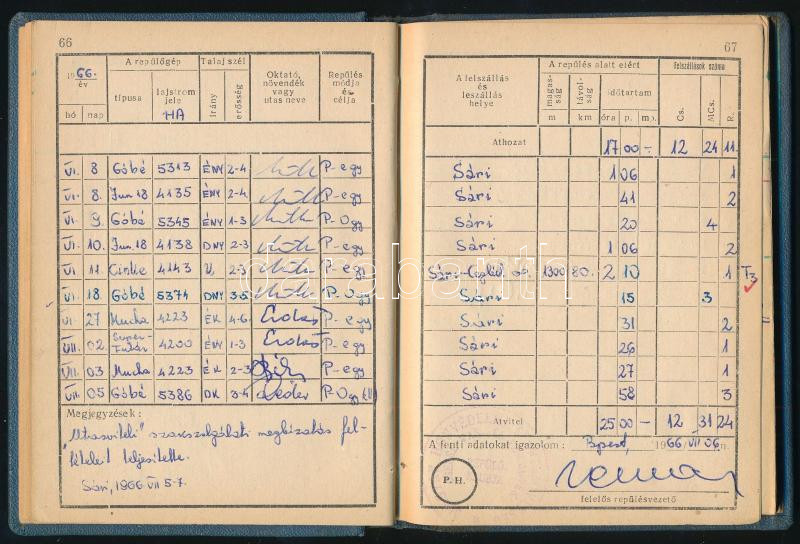 66
1966. év
A repülőgép
Talaj szél
Oktató, növendék vagy utas neve
Repülés módja és célja
hó nap típusa lajstrom jele HA irány erősség
VI. 8 Góbé 5313 ÉNY 2-4 P-egy
VI. 8. Jun.18 4135 ÉNY 2-4 P-egy
VI. 9. Góbé 5345 ÉNY 1-3 P-Ogy
VI. 10. Jun.18 4138 DNY 2-3 P-egy
VI. 11. Cinke 4143 V, 2-3 P-egy
VI. 18. Góbé 5374 DNY 3-5 P-Ogy
VI. 27 Mucha 4223 ÉK 4-6 Erdős P-egy
VII. 02 Super-Futár 4200 ÉNY 1-3 Erdős P-egy
VII. 03 Mucha 4223 ÉK 2-3 P-egy
VII. 05 Góbé 5386 DK 3-4 P-Ogy
Megjegyzések:
„Utasviteli" szakszolgálati megbizatás fel-
tételeit teljesítette.
Sári, 1966 VII 5-7.
67
A felszállás és leszállás helye
A repülés alatt elért
felszállások száma
magasság m távolság km időtartam óra p. mp. Cs. MCs. R.
Áthozat 17 00 - 12 24 11
Sári 1 06 1
Sári 41 2
Sári 20 4
Sári 1 06 2
Sári-Cegléd 1300 80. 2 10 1 T3
Sári 15 3
Sári 31 2
Sári 26 1
Sári 27 1
Sári 58 3
Átvitel 25 00 - 12 31 24
A fenti adatokat igazolom: Bpest, 1966 VII 06.n.
P. H.
felelős repülésvezető
darabanth